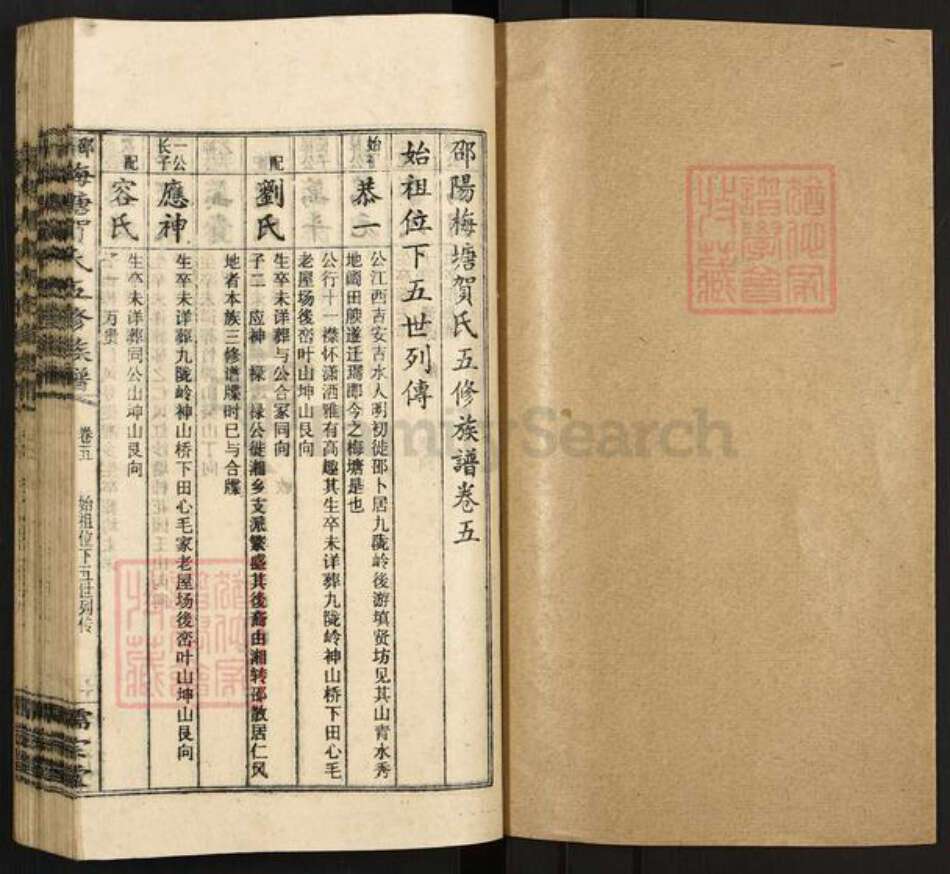 邵陽梅塘賀氏五修族譜卷五
始祖位下五世列傳
始祖
恭一
公江西吉安吉水人明初徙邵卜居九陇岭後游填贤坊见其山青水秀
地阔田膄遂迁焉即今之梅塘是也
公行十一襟怀潇洒雅有高趣其生卒未详葬九陇岭神山桥下田心毛
老屋场後峦叶山坤山艮向
配
劉氏
生卒未详葬与公合冢同向
子二 应神 禄 禄公徙湘乡支派繁盛其後裔由湘转邵散居仁风
地者本族三修谱牒时已与合牒
一公
长子
應神
生卒未详葬九陇岭神山桥下田心毛家老屋场後峦叶山坤山艮向
配
容氏
生卒未详葬同公山坤山艮向
万
邵 梅塘賀氏五修族譜
卷五
始祖位下五世列传
FamilySearch